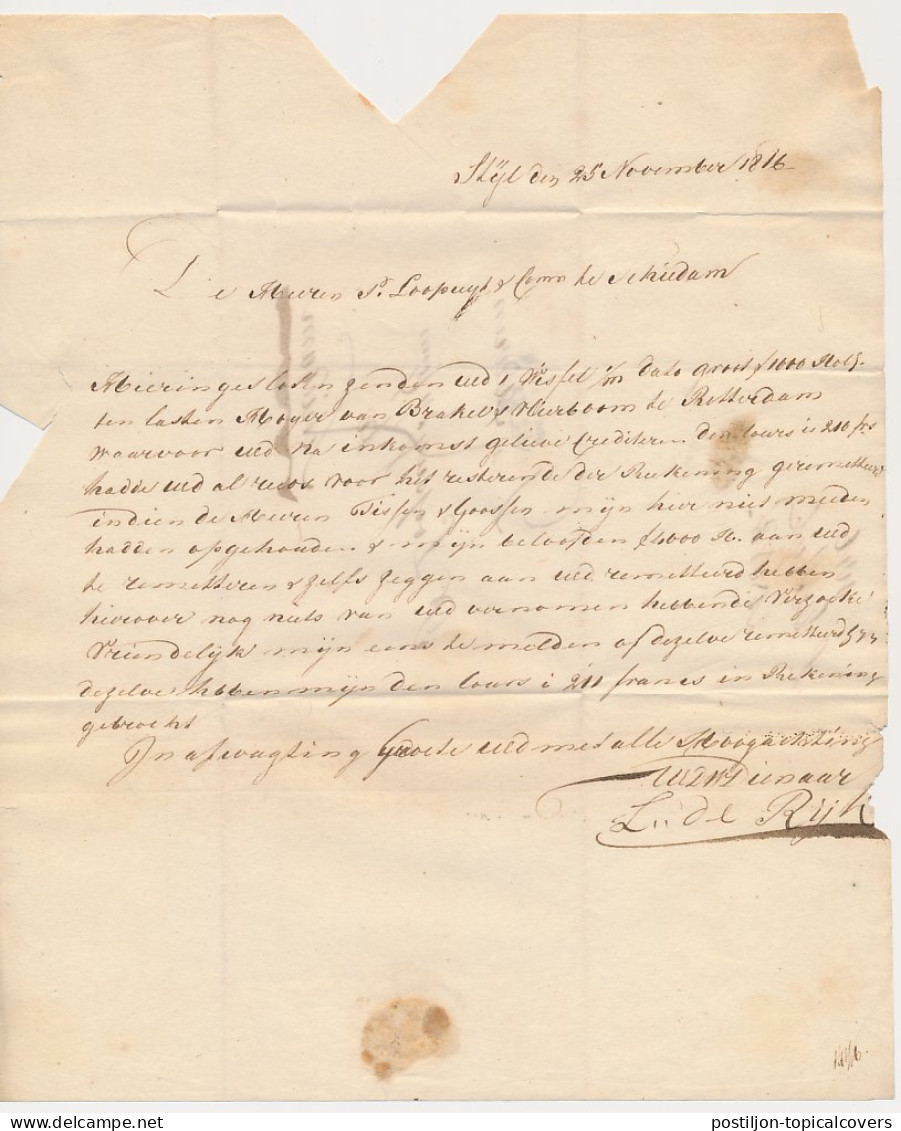 Stÿl den 25 November 1816
De Heeren P. Loopuyt & Comp te Schiedam
Hieringesloten zenden uEd 1 Wissel 1/m dato groot ƒ1000 Holl:
ten lasten Hoyer van Brakel & Vierboom te Rotterdam
waarvoor uEd na inkomst gelieve Crediteren den Cours is 210 frs
hadde uEd al reeds voor het resterende der Reekening geremitteerd
indien de Heeren Tissen & Goossen mijn hier niet meeden
hadden opgehouden & mijn beloofden ƒ1000 H. aan uEd
te remetteren & zelfs zeggen aan uEd remetteerd hebben
hierover nog niets van uEd vernomen hebbende Verzoeke
Vriendelijk mijn eens te melden of dezelve remetteerd zijn
dezelve hebben mijn den Cours à 211 francs in Rekening
gebrocht
In afwagting Groete uEd met alle Hoogachting
UEDW Dienaar
L: de Rijk
1816
postiljon-topicalcovers